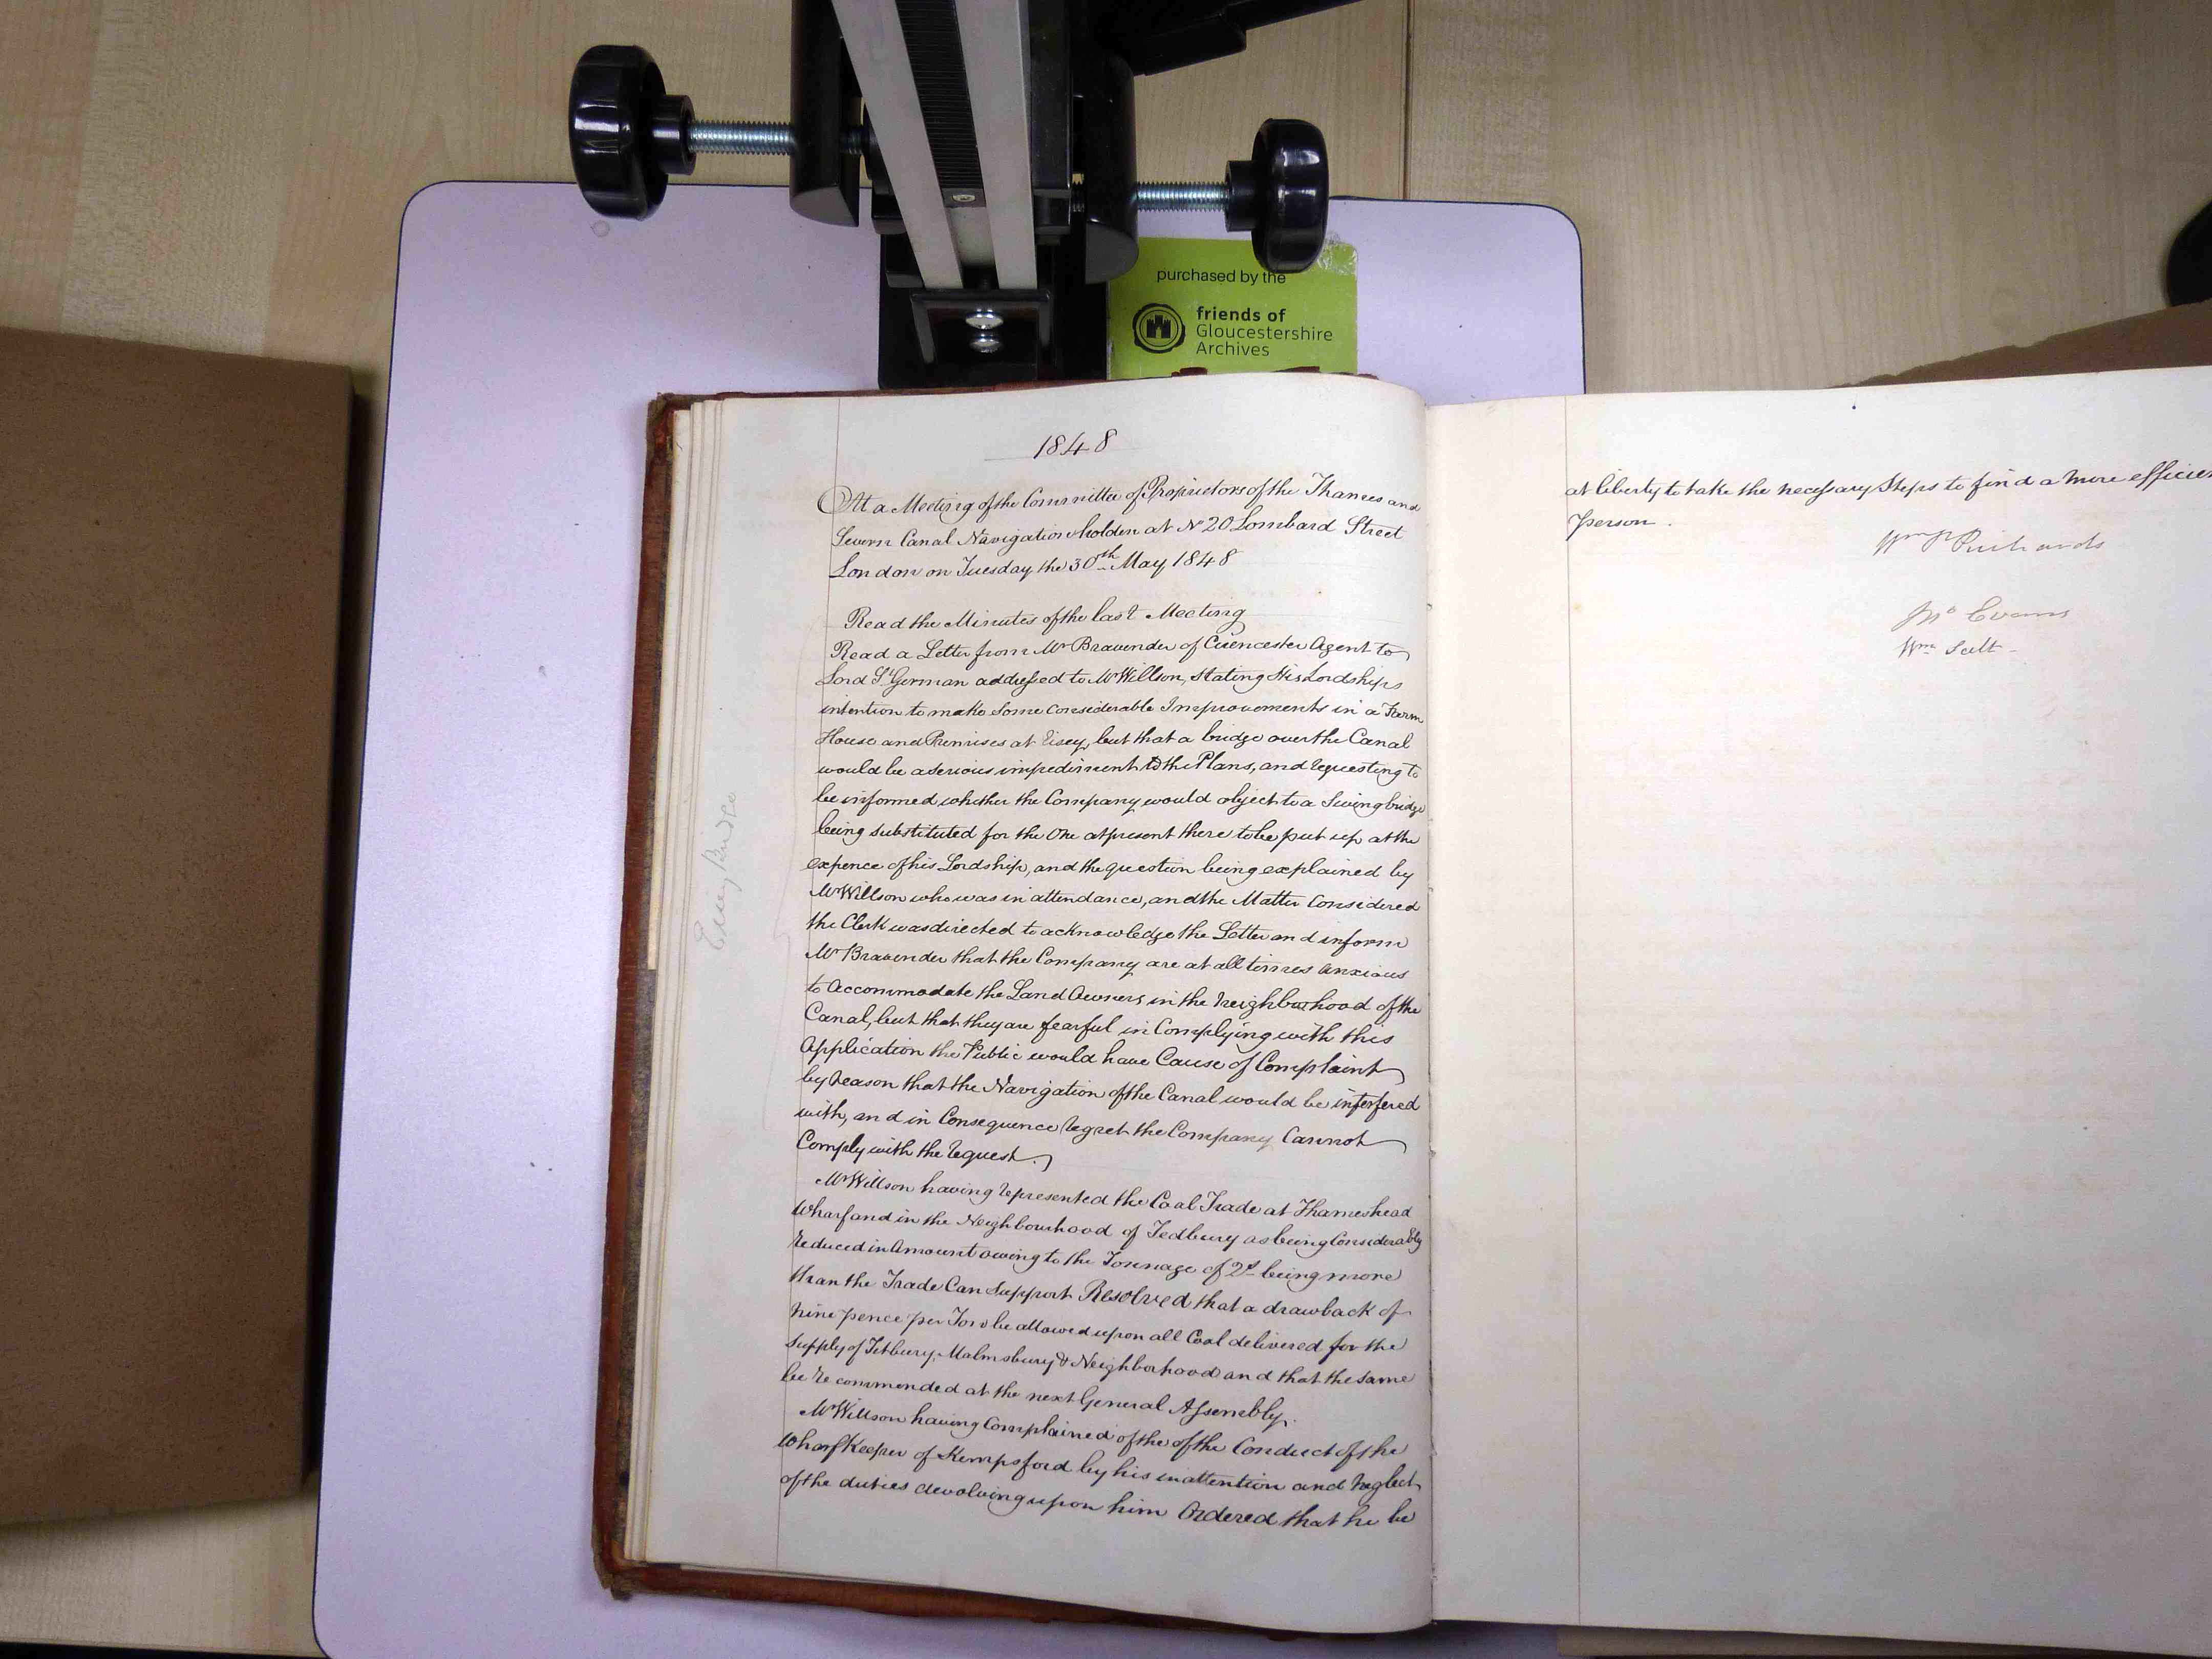 purchased by the
friends of
Gloucestershire
Archives
1848
At a Meeting of the Committee of Proprietors of the Thames and
Severn Canal Navigation holden at No 20 Lombard Street
London on Tuesday the 30th May 1848
Read the Minutes of the last Meeting
Read a Letter from Mr Bravender of Cirencester Agent to
Lord St German addressed to Mr Willson, stating His Lordships
intention to make some considerable Improvements in a Farm
House and Premises at Eisey, but that a bridge over the Canal
would be a serious impediment to the Plans, and requesting to
be informed whether the Company would object to a Swing bridge
being substituted for the One at present there to be put up at the
expence of his Lordship, and the question being explained by
Mr Willson who was in attendance, and the Matter Considered
the Clerk was directed to acknowledge the Letter and inform
Mr Bravender that the Company are at all times anxious
to Accommodate the Land Owners in the Neighborhood of the
Canal, but that they are fearful in Complying with this
Application the Public would have Cause of Complaint
by reason that the Navigation of the Canal would be interfered
with, and in Consequence regret the Company Cannot
Comply with the request.
Mr Willson having represented the Coal Trade at Thameshead
Wharf and in the Neighbourhood of Tedbury as being Considerably
reduced in Amount owing to the Tonnage of 2s being more
than the Trade Can support Resolved that a drawback of
nine pence per Ton be allowed upon all Coal delivered for the
supply of Tetbury, Malmsbury & Neighborhood and that the same
be recommended at the next General Assembly.
Mr Willson having Complained of the of the Conduct of the
Wharf Keeper of Kempsford by his inattention and neglect
of the duties devolving upon him Ordered that he be
at liberty to take the necessary Steps to find a more efficien
person.
Wm Richards
Jno Evans
Wm Salt